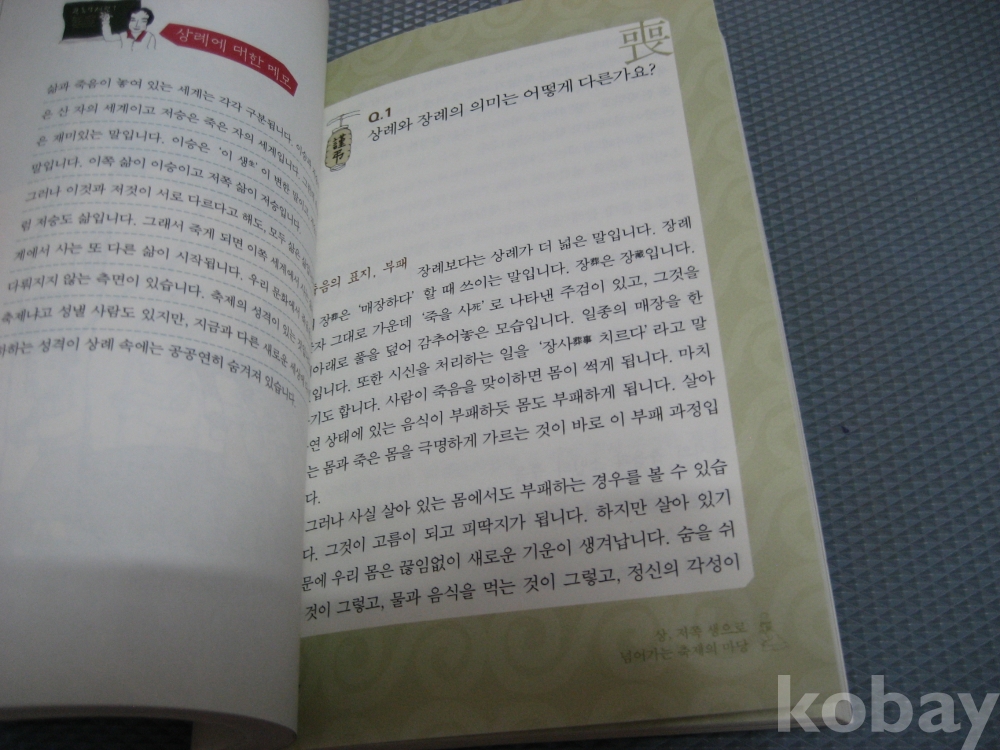 상례에 대한 메모
삶과 죽음이 놓여 있는 세계는 각각 구분됩니다. 이승
은 산 자의 세계이고 저승은 죽은 자의 세계입니다.
은 재미있는 말입니다. 이승은 '이 생生'이 변한 말이고,
말입니다. 이쪽 삶이 이승이고 저쪽 삶이 저승입니다.
그러나 이것과 저것이 서로 다르다고 해도, 모두 삶은
럼 저승도 삶입니다. 그래서 죽게 되면 이쪽 세계에서
계에서 사는 또 다른 삶이 시작됩니다. 우리 문화에서
다뤄지지 않는 측면이 있습니다. 축제의 성격이 있는
축제냐고 성낼 사람도 있지만, 지금과 다른 새로운
하는 성격이 상례 속에는 공공연히 숨겨져 있습니다.
喪
謹弔
Q.1
상례와 장례의 의미는 어떻게 다른가요?
죽음의 표지, 부패 장례보다는 상례가 더 넓은 말입니다. 장례
장葬은 '매장하다' 할 때 쓰이는 말입니다. 장葬은 장藏입니다.
그대로 가운데 '죽을 사死'로 나타낸 주검이 있고, 그것을
아래로 풀을 덮어 감추어놓은 모습입니다. 일종의 매장을 한
입니다. 또한 시신을 처리하는 일을 '장사葬事 치르다'라고 말
기도 합니다. 사람이 죽음을 맞이하면 몸이 썩게 됩니다. 마치
연 상태에 있는 음식이 부패하듯 몸도 부패하게 됩니다. 살아
는 몸과 죽은 몸을 극명하게 가르는 것이 바로 이 부패 과정입
다.
그러나 사실 살아 있는 몸에서도 부패하는 경우를 볼 수 있습
다. 그것이 고름이 되고 피딱지가 됩니다. 하지만 살아 있기
문에 우리 몸은 끊임없이 새로운 기운이 생겨납니다. 숨을 쉬
것이 그렇고, 물과 음식을 먹는 것이 그렇고, 정신의 각성이
상, 저쪽 생으로
넘어가는 축제의 마당
kobay